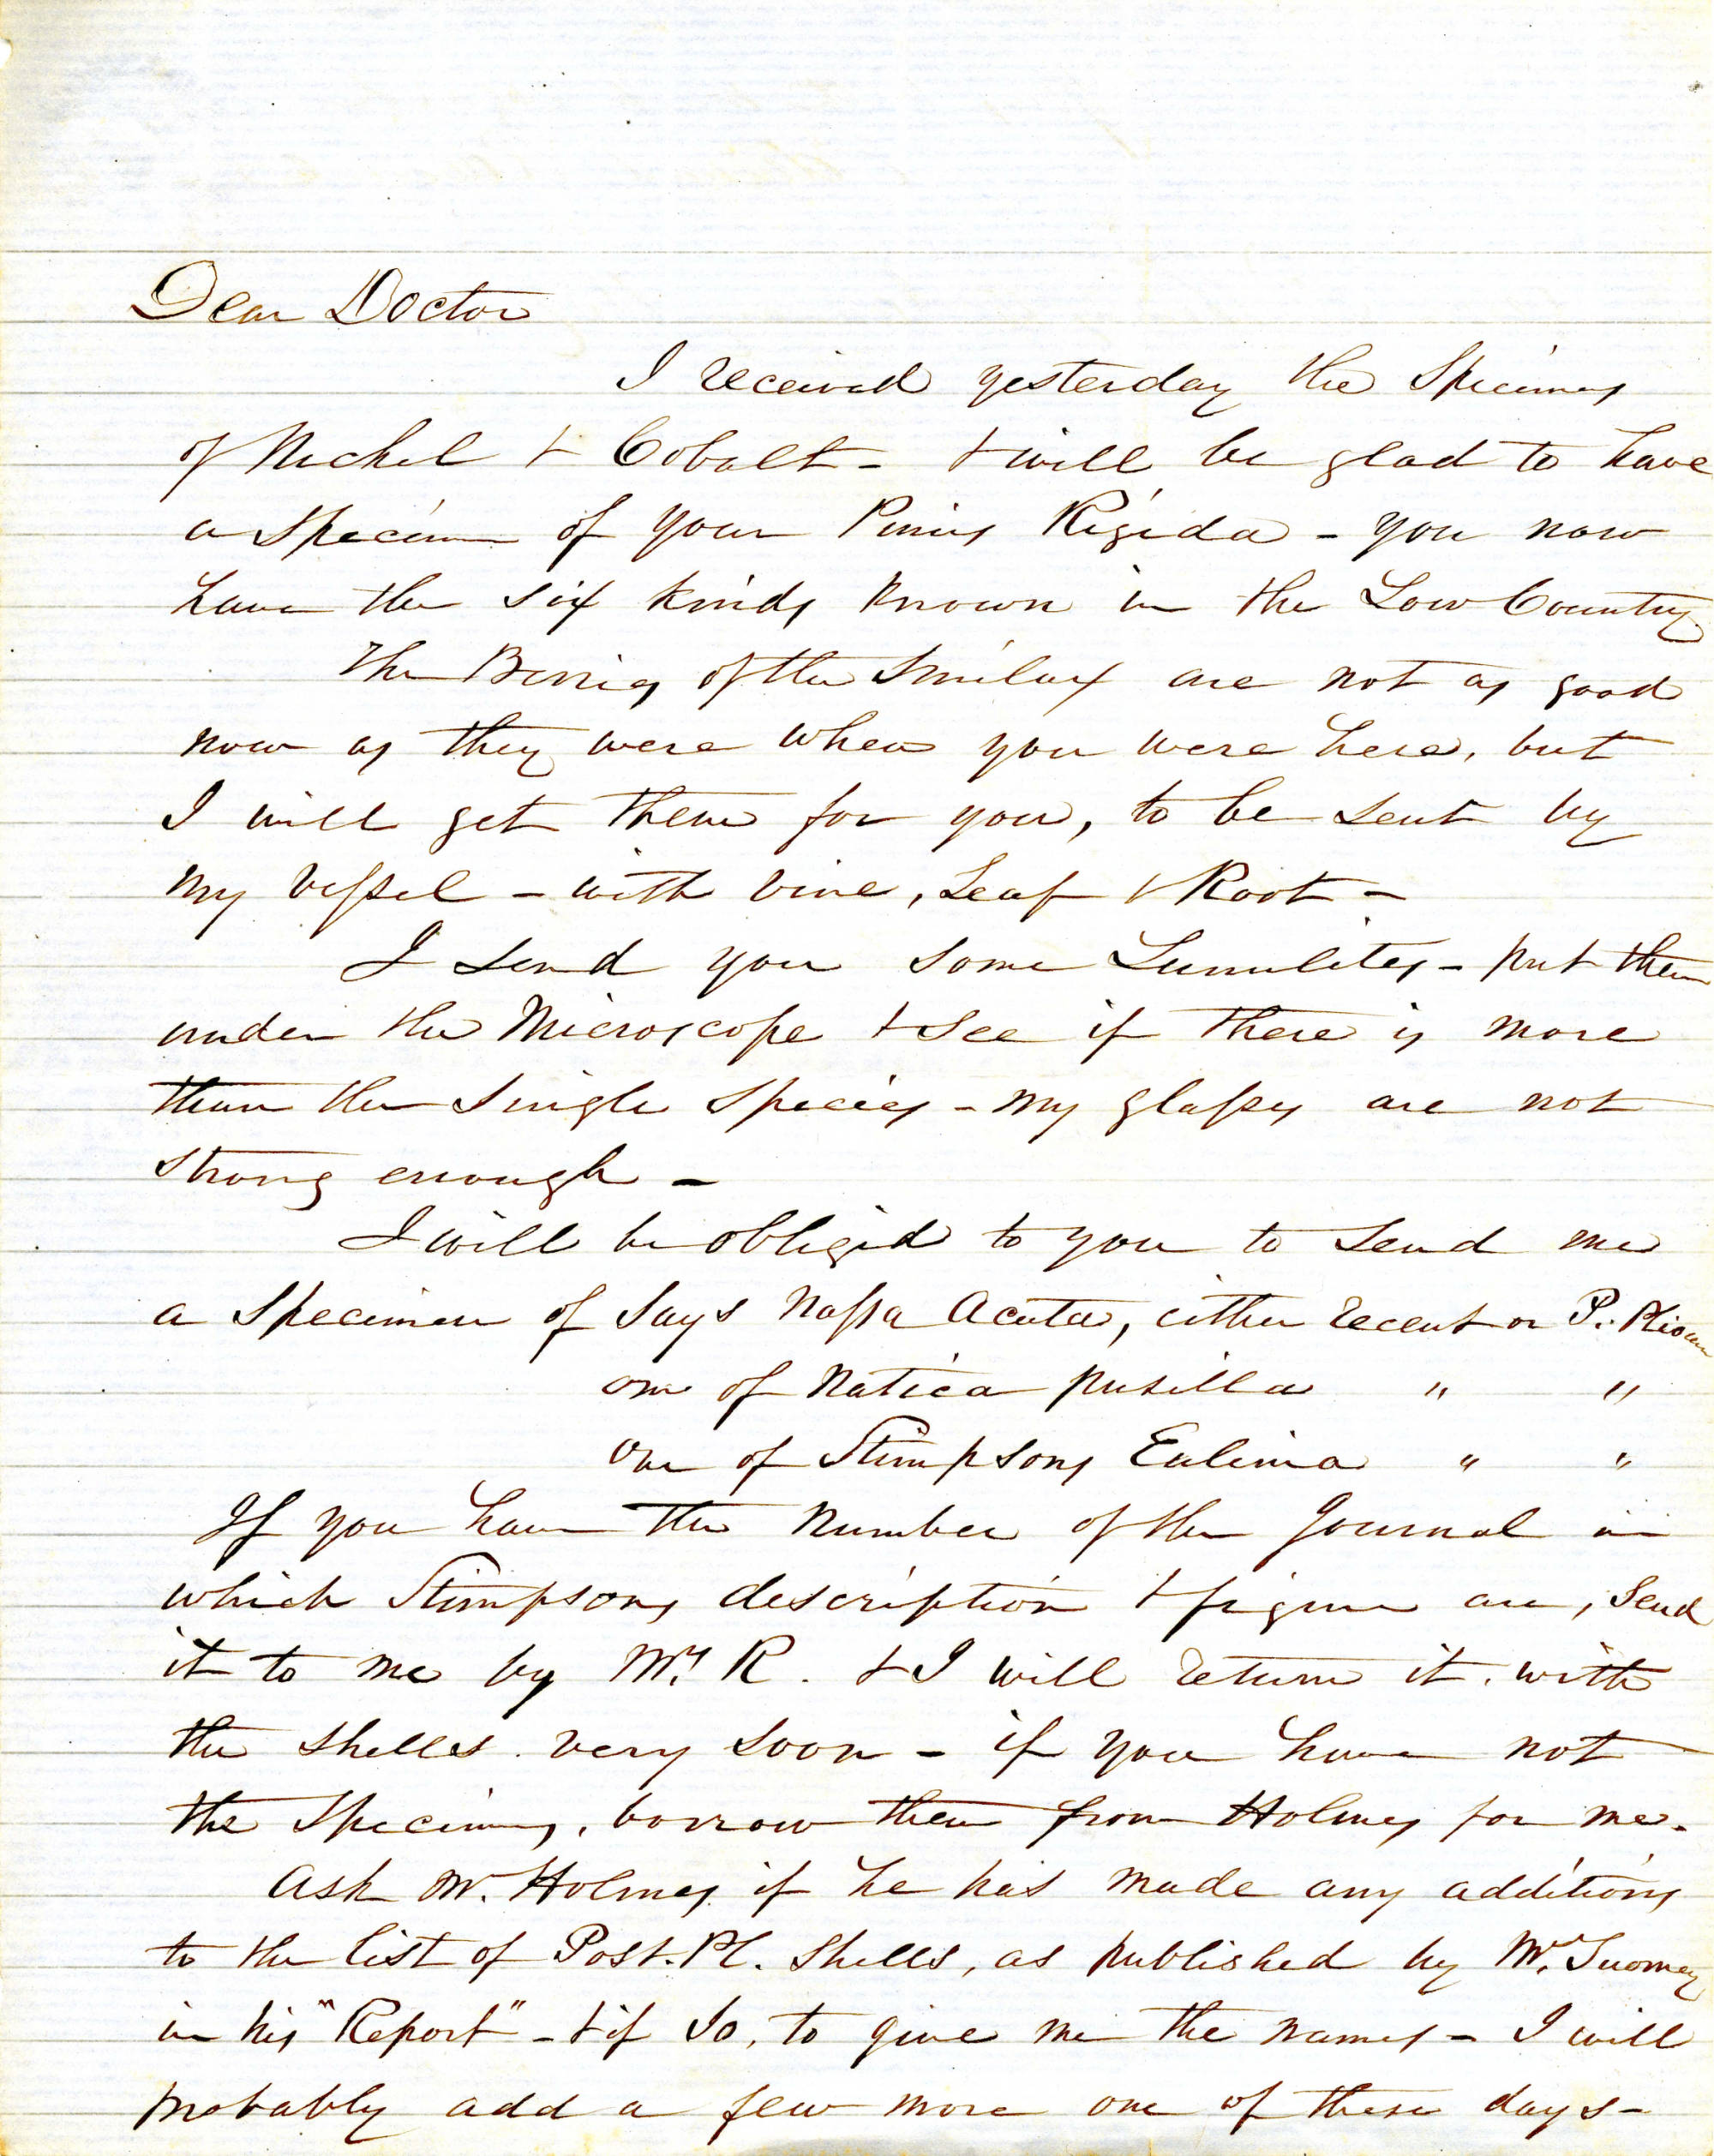 Dear Doctor
I received yesterday the Specimens
of Nickel & Cobalt - & will be glad to have
a Specimen of your Pinus Rigida - you now
have the six kinds known in the Low Country
The Berries of the Smilax are not as good
now as they were when you were here, but
I will get them for you, to be sent by
my vessel - with vine, Leaf & Root -
I send you some Lunulites - put them
under the Microscope & see if there is more
than the single species - my glasses are not
strong enough -
I will be obliged to you to send me
a Specimen of Says Nassa Acuta, either recent or P. Pliocene
one of Natica pusilla " "
one of Stimpsons Eulima " "
If you have the number of the Journal in
which Stimpsons description & figure are, send
it to me by Mr. R. & I will return it. with
the shells. very soon - if you have not
the Specimens, borrow them from Holmes for me.
Ask Mr. Holmes if he has made any additions
to the list of Post. Pl. Shells, as published by Mr. Tuomey
in his "Report" - & if so, to give me the names - I will
probably add a few more one of these days -